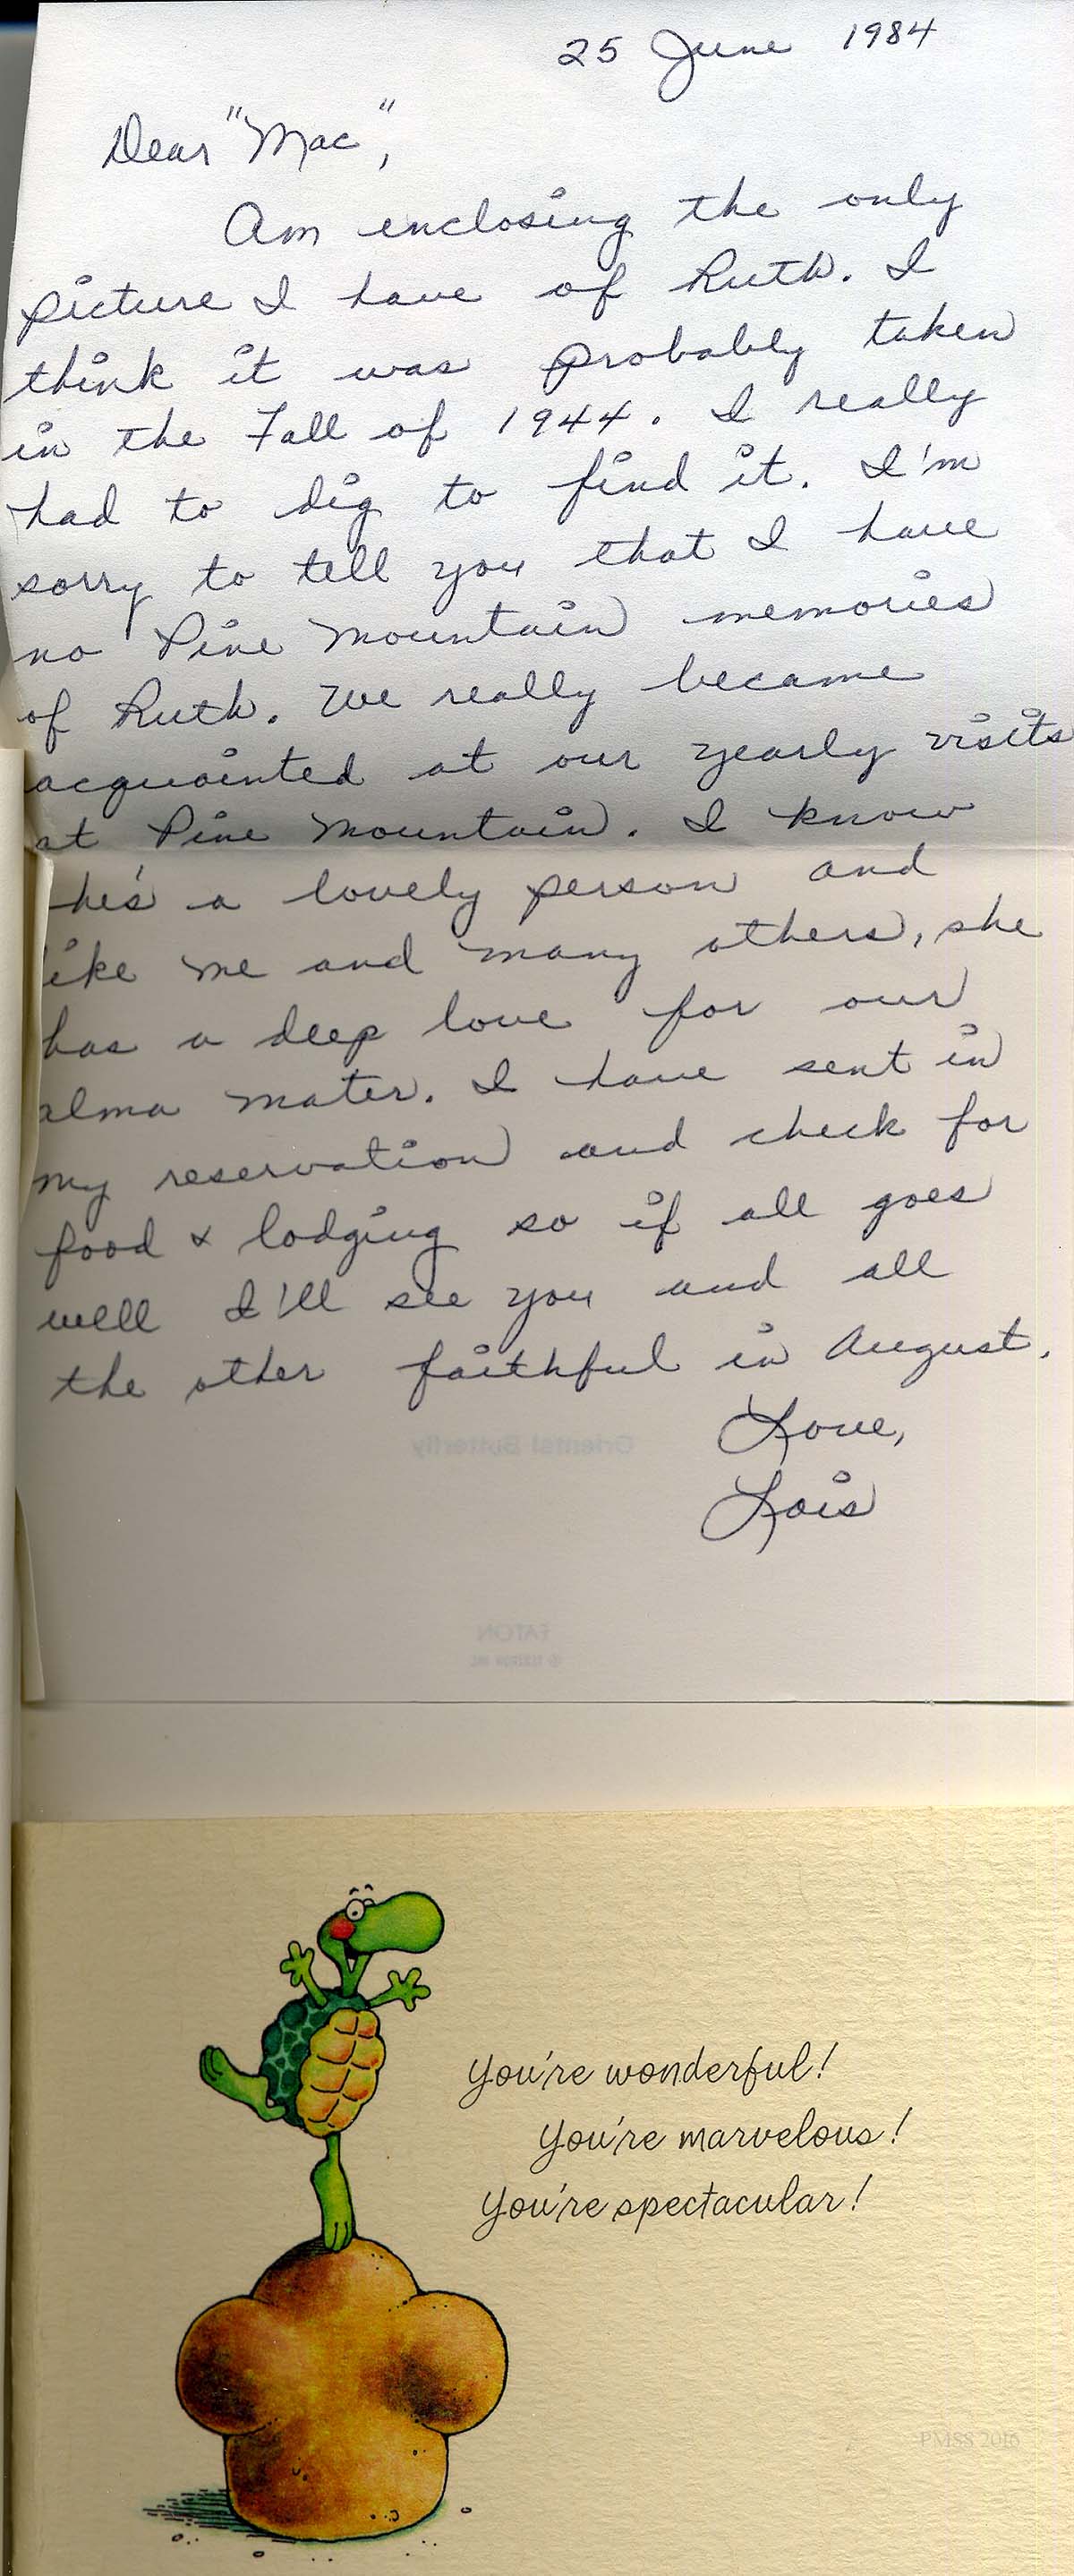 25 June 1984
Dear "Mac",
Am enclosing the only
picture I have of Ruth. I
think it was probably taken
in the Fall of 1944. I really
had to dig to find it. I'm
sorry to tell you that I have
no Pine Mountain memories
of Ruth. We really became
acquainted at our yearly visits
at Pine Mountain. I know
he's a lovely person and
ike me and many others, she
has a deep love for our
alma mater. I have sent in
my reservation and check for
food & lodging so if all goes
well I'll see you and all
the other faithful in August.
Love,
Oriental Butterfly
Lois
EATON
You're wonderful!
You're marvelous!
You're spectacular!
PMSS 2016